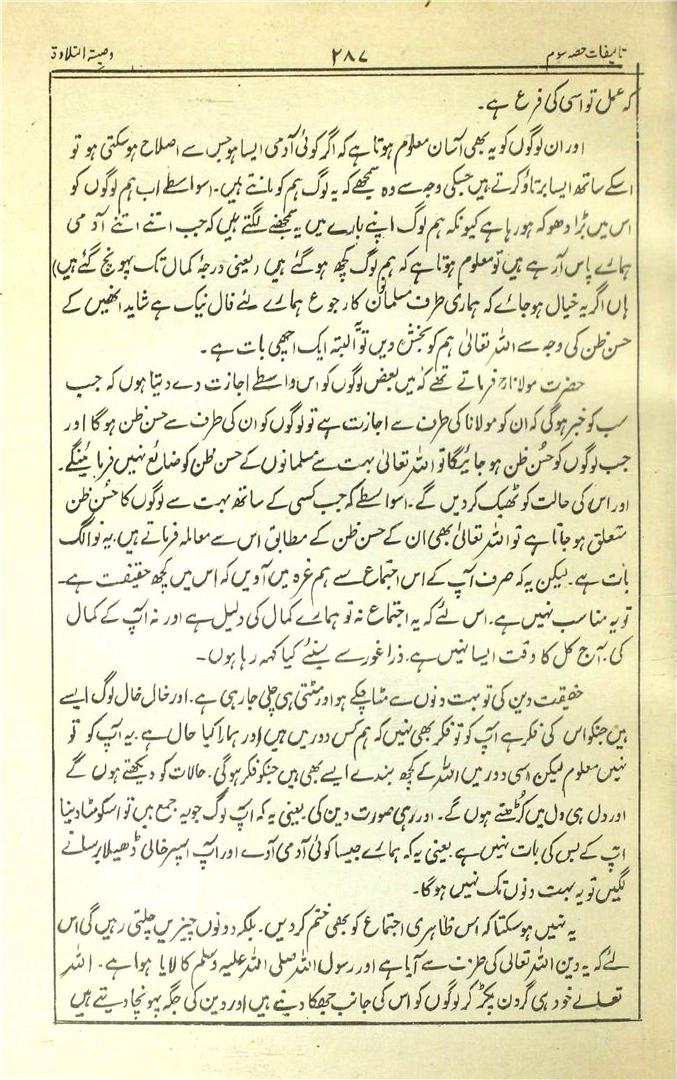 تالیفات حصہ سوم ۲۸۷ وصیۃ التلاوۃ
کہ عمل تو اسی کی فرع ہے۔
اور ان لوگوں کو یہ بھی آسان معلوم ہوتا ہے کہ اگر کوئی آدمی ایسا ہو جس سے اصلاح ہو سکتی ہو تو
اسکے ساتھ ایسا برتاؤ کرتے ہیں جسکی وجہ سے وہ سمجھے کہ یہ لوگ ہم کو مانتے ہیں۔ اسواسطے اب ہم لوگوں کو
اس میں بڑا دھوکہ ہو رہا ہے کیونکہ ہم لوگ اپنے بارے میں یہ سمجھنے لگتے ہیں کہ جب اتنے اتنے آدمی
ہمارے پاس آرہے ہیں تو معلوم ہوتا ہے کہ ہم لوگ کچھ ہو گئے ہیں (یعنی درجۂ کمال تک پہونچ گئے ہیں)
ہاں اگر یہ خیال ہو جائے کہ ہماری طرف مسلمانوں کا رجوع ہمارے لئے فال نیک ہے شاید انھیں کے
حسن ظن کی وجہ سے اللہ تعالیٰ ہم کو بخش دیں تو البتہ ایک اچھی بات ہے۔
حضرت مولاناؒ فرماتے تھے کہ میں بعض لوگوں کو اس واسطے اجازت دے دیتا ہوں کہ جب
سب کو خبر ہوگی کہ ان کو مولانا کی طرف سے اجازت ہے تو لوگوں کو ان کی طرف سے حسن ظن ہوگا اور
جب لوگوں کو حُسن ظن ہو جائیگا تو اللہ تعالیٰ بہت سے مسلمانوں کے حسن ظن کو ضائع نہیں فرمائینگے۔
اور اس کی حالت کو ٹھیک کردیں گے۔ اسواسطے کہ جب کسی کے ساتھ بہت سے لوگوں کا حُسنِ ظن
متعلق ہو جاتا ہے تو اللہ تعالیٰ بھی ان کے حسن ظن کے مطابق اس سے معاملہ فرماتے ہیں، یہ تو الگ
بات ہے۔ لیکن یہ کہ صرف آپ کے اس اجتماع سے ہم غرہ میں آویں کہ اس میں کچھ حقیقت ہے۔
تو یہ مناسب نہیں ہے۔ اس لئے کہ یہ اجتماع نہ تو ہمارے کمال کی دلیل ہے اور نہ آپ کے کمال
کی۔ آج کل کا وقت ایسا نہیں ہے۔ ذرا غور سے سنئے کیا کہہ رہا ہوں۔
حقیقت دین کی تو بہت دنوں سے مٹا چکے ہو اور مٹتی ہی چلی جارہی ہے۔ اور خال خال لوگ ایسے
ہیں جنکو اس کی فکر ہے آپ کو تو فکر بھی نہیں کہ ہم کس دور میں ہیں اور ہمارا کیا حال ہے۔ یہ آپ کو تو
نہیں معلوم لیکن اسی دور میں اللہ کے کچھ بندے ایسے بھی ہیں جنکو فکر ہوگی۔ حالات کو دیکھتے ہوں گے
اور دل ہی دل میں کُڑھتے ہوں گے۔ اور رہی صورت دین کی۔ یعنی یہ کہ آپ لوگ جو یہ جمع ہیں تو اسکو مٹا دینا
آپ کے بس کی بات نہیں ہے یعنی یہ کہ ہمارے جیسا کوئی آدمی آوے اور آپ اسپر خالی ڈھیلا برسانے
لگیں تو یہ بہت دنوں تک نہیں ہوگا۔
یہ نہیں ہو سکتا کہ اس ظاہری اجتماع کو بھی ختم کردیں۔ بلکہ دونوں چیزیں چلتی رہیں گی اس
لئے کہ یہ دین اللہ تعالیٰ کی طرف سے آیا ہے اور رسول اللہ صلی اللہ علیہ وسلم کا لایا ہوا ہے۔ اللہ
تعالےٰ خود ہی گردن پکڑ کر لوگوں کو اس کی جانب جھکا دیتے ہیں اور دین کی جگہ پہونچا دیتے ہیں